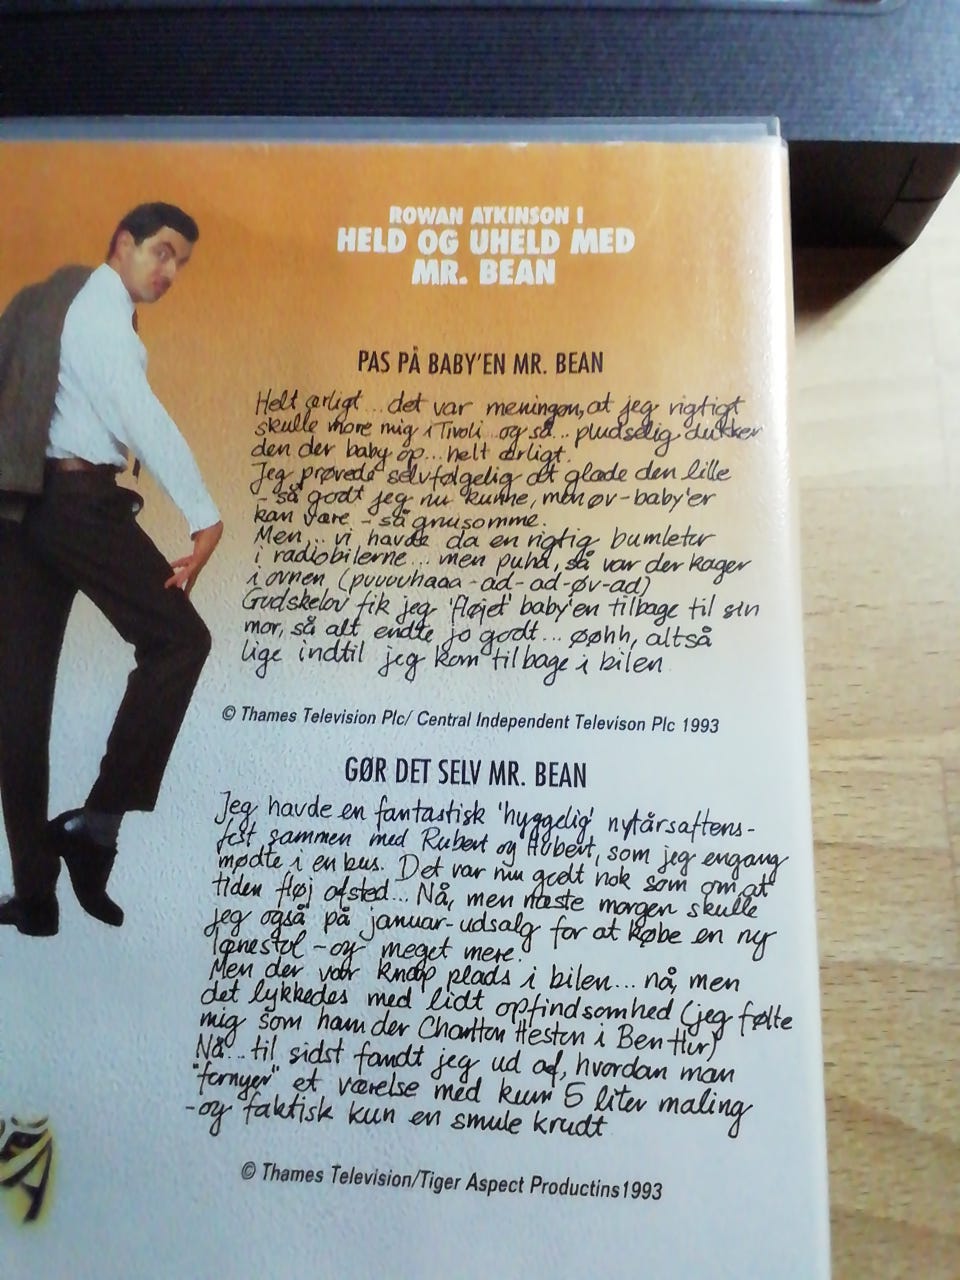 ROWAN ATKINSON I
HELD OG UHELD MED
MR. BEAN
PAS PÅ BABY'EN MR. BEAN
Helt ærligt... det var meningen, at jeg rigtigt
skulle more mig i Tivoli og så... pludselig dukker
den der baby op... helt ærligt.
Jeg prøvede selvfølgelig at glæde den lille
- så godt jeg nu kunne, men øv-baby'er
kan være - så grusomme.
Men... vi havde da en rigtig bumletur
i radiobilerne... men puha, så var der kager
i ovnen (puuuuhaaa-ad-ad-øv-ad)
Gudskelov fik jeg 'fløjet' baby'en tilbage til sin
mor, så alt endte jo godt... øøhh, altså
lige indtil jeg kom tilbage i bilen
© Thames Television Plc/ Central Independent Televison Plc 1993
GØR DET SELV MR. BEAN
Jeg havde en fantastisk 'hyggelig' nytårsaftens-
fest sammen med Rubert og Hubert, som jeg engang
mødte i en bus. Det var nu godt nok som om at
tiden fløj afsted... Nå, men næste morgen skulle
jeg også på januar-udsalg for at købe en ny
lænestol - og meget mere.
Men der var knap plads i bilen... nå, men
det lykkedes med lidt opfindsomhed (jeg følte
mig som ham der Charlton Heston i Ben Hur)
Nå... til sidst fandt jeg ud af, hvordan man
"fornyer" et værelse med kun 5 liter maling
- og faktisk kun en smule krudt
© Thames Television/Tiger Aspect Productins1993